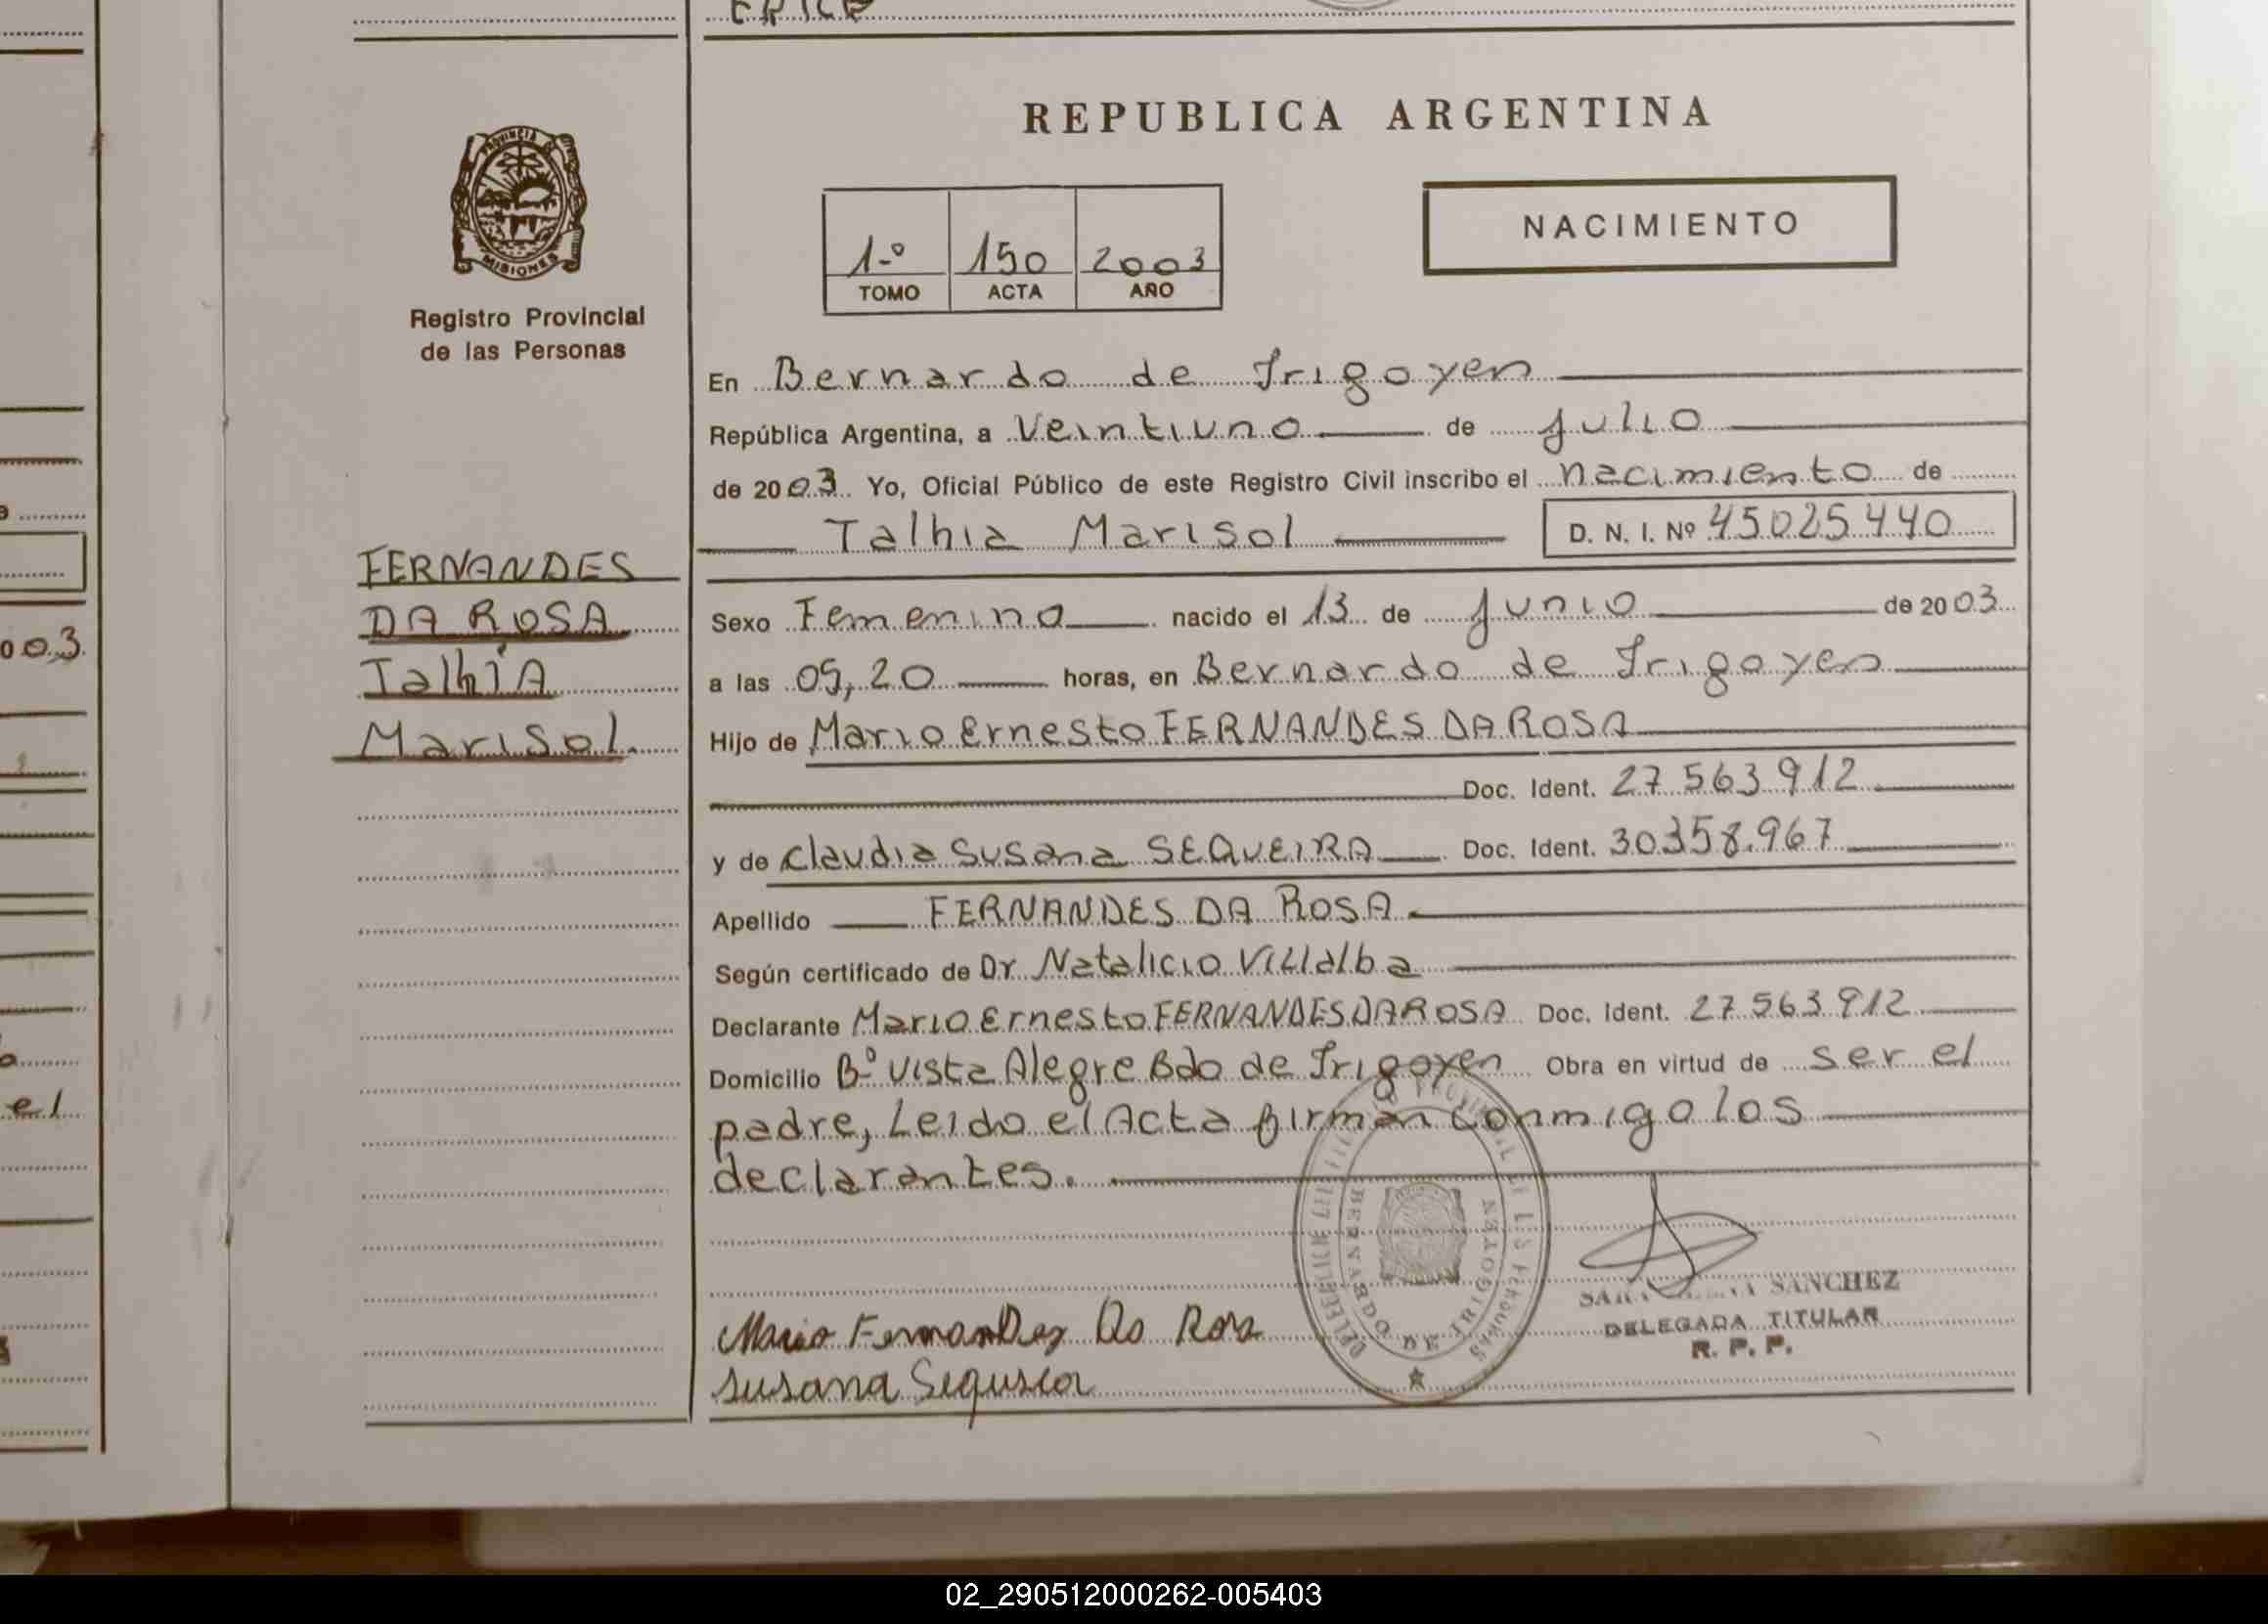 REPUBLICA ARGENTINA
PROVINCIA DE
MISIONES
Registro Provincial
de las Personas
1-º 150 2003
TOMO ACTA AÑO
NACIMIENTO
En Bernardo de Irigoyen
República Argentina, a Veintiuno de julio
de 2003 Yo, Oficial Público de este Registro Civil inscribo el nacimiento de
Talhia Marisol D. N. I. Nº 45025440
FERNANDES
DA ROSA
TalhiA
Marisol.
Sexo Femenino nacido el 13 de junio de 2003
a las 09,20 horas, en Bernardo de Irigoyen
Hijo de Mario Ernesto FERNANDES DA ROSA
Doc. Ident. 27 563 912
y de Claudia Susana SEQUEIRA Doc. Ident. 30358.967
Apellido FERNANDES DA ROSA
Según certificado de Dr Natalicio Villalba
Declarante Mario Ernesto FERNANDES DA ROSA Doc. Ident. 27 563 912
Domicilio Bº Vista Alegre Bdo de Irigoyen Obra en virtud de ser el
padre, Leido el Acta firman conmigo los
declarantes.
BERNARDO DE IRIGOYEN
SANCHEZ
DELEGADA TITULAR
R. P. P.
Mario Fernandes Da Rosa
Susana Sequeira
003
el
02_290512000262-005403